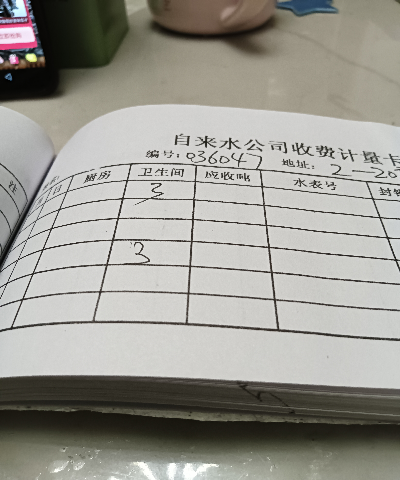 自来水公司收费计量卡
编号:036047 地址:2—20
月 日 厨房 卫生间 应收吨 水表号 封
3
3